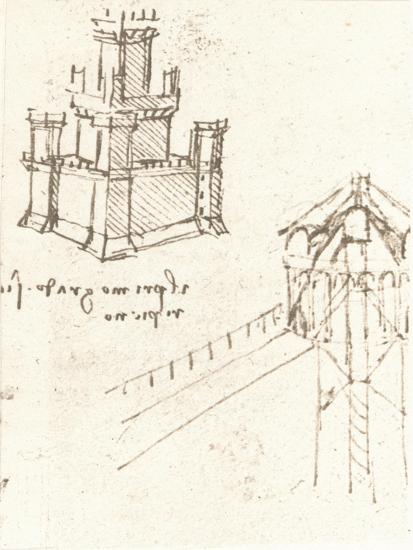 el primo grado
ripieno